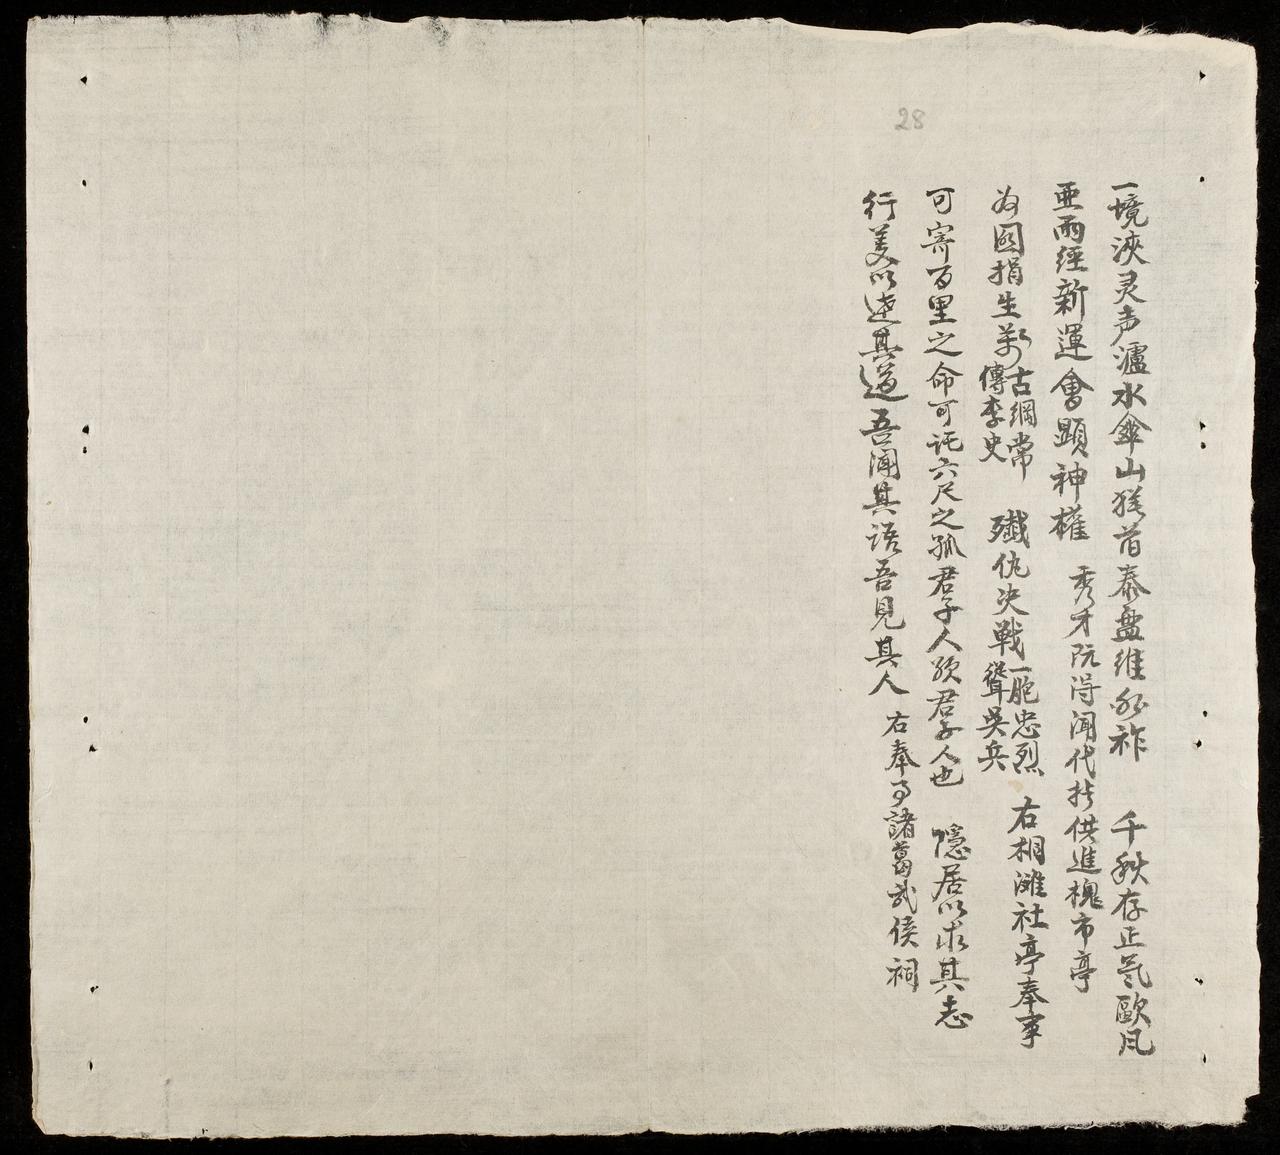 28
一境浹灵声瀘水傘山猶首泰盘维永祚 千秋存正气歐风
亜雨経新運會顕神權 秀才阮淂闻代攷供進槐市亭
为國捐生萬古綱常傳李史 殲仇决戦一胞忠烈聳吳兵 右桐滩社亭奉事
可寄百里之命可託六尺之孤君子人欤君子人也 隱居以求其志
行义以達其道吾闻其语吾見其人 右奉事諸葛武侯祠